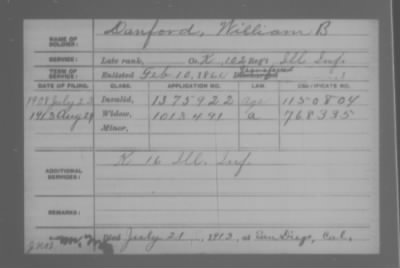 NAME OF SOLDIER: Danford, William B
SERVICE: Late rank, Co. K, 102 Reg't Ill Inf.
TERM OF SERVICE: Enlisted Feb 10, 186 Discharged Transferred , 1
DATE OF FILING. CLASS. APPLICATION NO. LAW. CERTIFICATE NO.
1908 July 23 Invalid, 1375922 age 1150804
1913 Aug 29 Widow, 1013491 a 768335
Minor,
ADDITIONAL SERVICES: K 16 Ill. Inf.
REMARKS:
Died July 21, 1913, at San Diego, Cal.